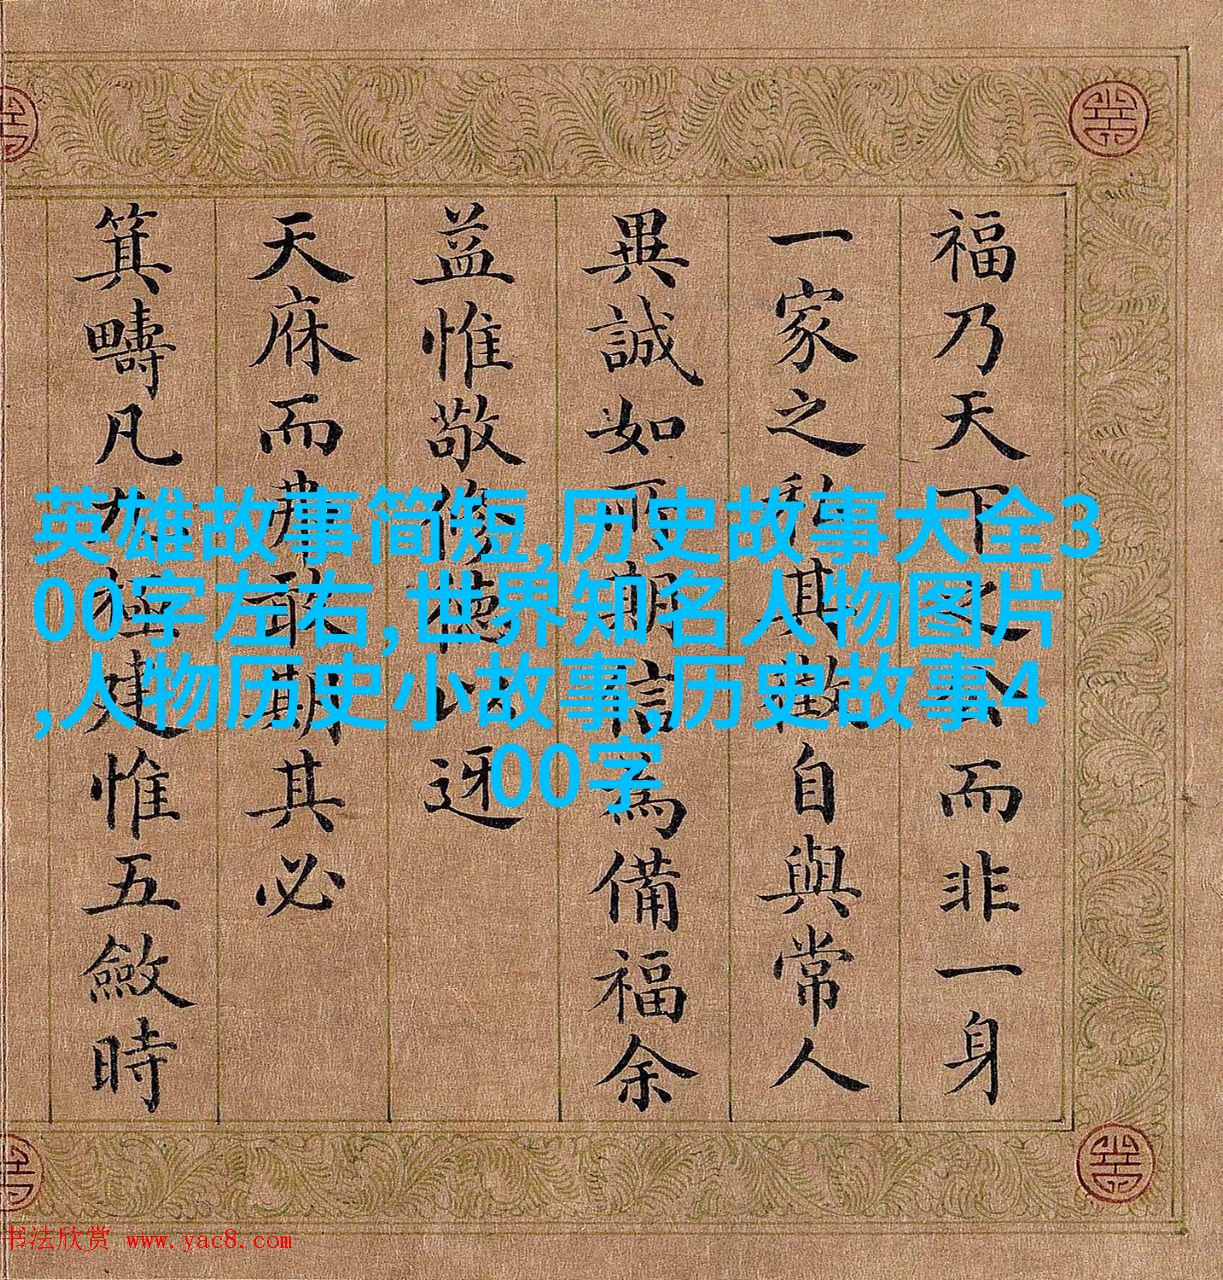 福乃天下之公而非一身
一家之私其敢自與常人
異誠如可期信為備福余
益惟敬修德以迓
天庥而弗敢期其必
箕疇凡九極建惟五斂時
英雄故事简短,历史故事大全3
00字左右,世界知名人物图片
,人物历史小故事,历史故事4
00字
书法欣赏 www.yac8.com